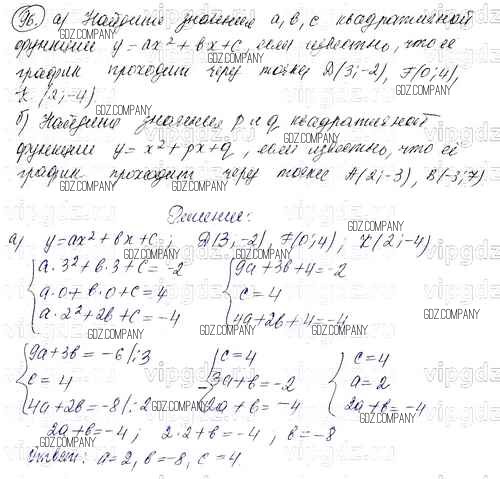 96. а) Найдите значения a, b, c квадратичной
функции y = ax² + bx + c, если известно, что её
график проходит через точки D(3; -2), F(0; 4),
K(2; -4)
б) Найдите значения p и q квадратичной
функции y = x² + px + q, если известно, что её
график проходит через точки A(2; -3), B(-3; 7)
Решение:
а) y = ax² + bx + c; D(3; -2), F(0; 4); K(2; -4)
a·3² + b·3 + c = -2 9a + 3b + 4 = -2
a·0 + b·0 + c = 4 c = 4
a·2² + 2b + c = -4 4a + 2b + 4 = -4
9a + 3b = -6 |:3 c = 4 c = 4
c = 4 3a + b = -2 a = 2
4a + 2b = -8 |:2 2a + b = -4 2a + b = -4
2a + b = -4; 2·2 + b = -4; b = -8
Ответ: a = 2, b = -8, c = 4.
GDZ.COMPANY
vipgdz